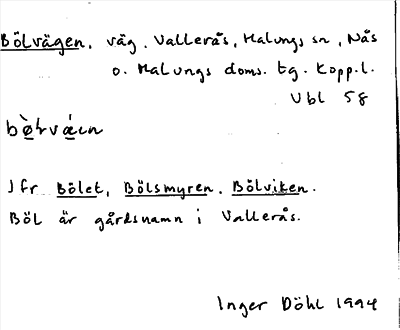 Bölvägen, väg. Vallerås, Malungs sn, Nås
o. Malungs doms. tg. Kopp.l.
Ubl 58
Jfr Bölet, Bölsmyren, Bölviken.
Böl är gårdsnamn i Vallerås.
Inger Döhl 1994